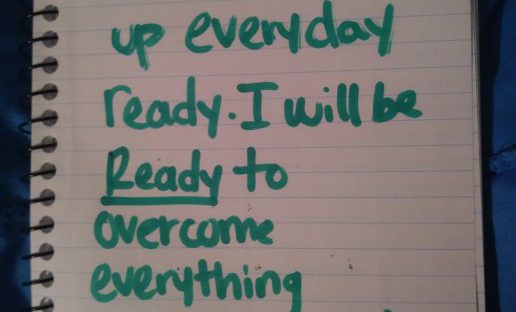 up everyday
ready. I will be
Ready to
overcome
everything